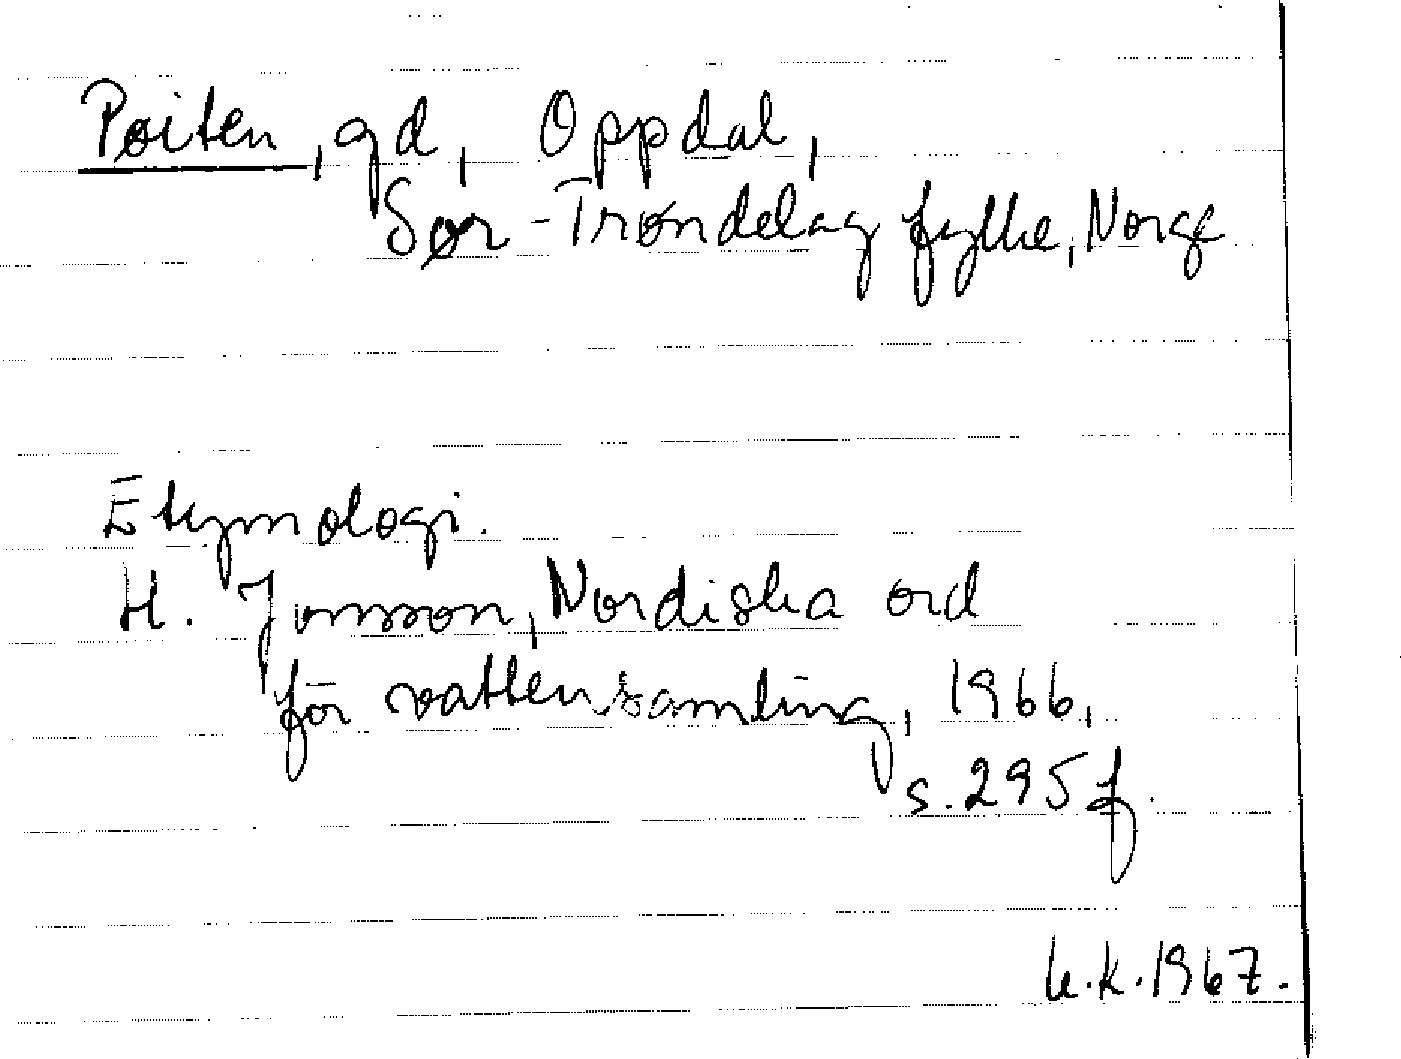 Pøiten, gd, Oppdal,
Sør-Trøndelag fylke, Norge
Etymologi.
H. Jonsson, Nordiska ord
för vattensamling, 1966,
s. 295 f.
k.k. 1967.